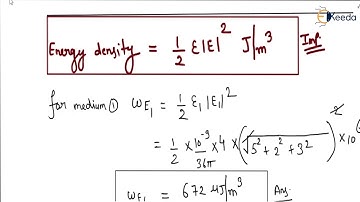 Ekeeda
Energy density = 1/2 ε|E|² J/m³ Imp.
for medium ① W_E₁ = 1/2 ε₁ |E₁|²
= 1/2 × 10⁻⁹/36π × 4 × (√5² + 2² + 3²)² × 10
W_E₁ = 672 μJ/m³ Ans.